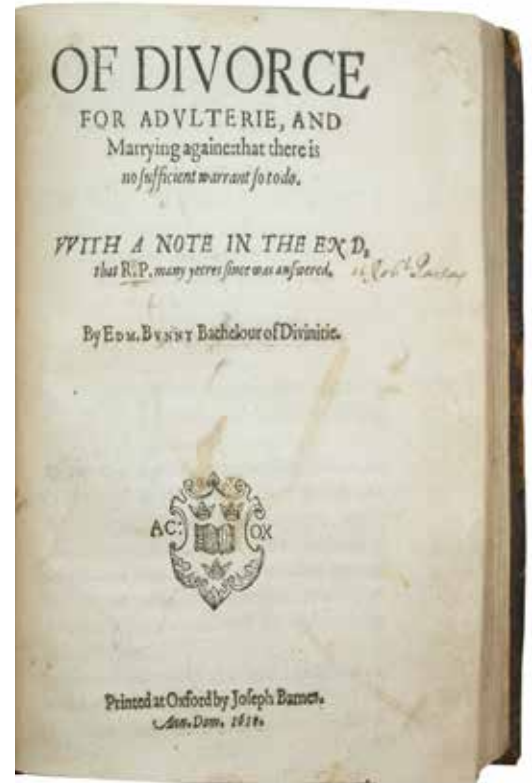 OF DIVORCE
FOR ADVLTERIE, AND
Marrying againe: that there is
no sufficient warrant so to do.
WITH A NOTE IN THE END,
that R.P. many yeeres since was answered.
By EDM. BVNNY Bachelour of Divinitie.
AC: OX
Printed at Oxford by Joseph Barnes.
Ann. Dom. 1610.